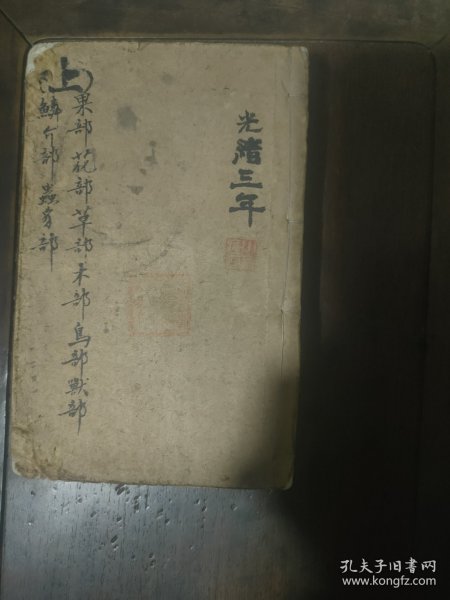 光緒三年
(上)
果部 花部 草部 木部 鳥部 獸部
鱗介部 蟲豸部
孔夫子旧书网
www.kongfz.com